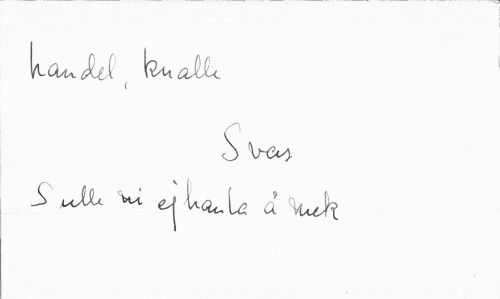 handel, knalle
Svas
Sulle ni ej hanla å mek